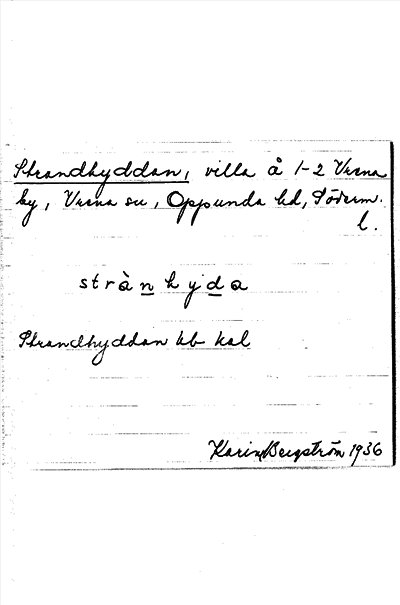 Strandhyddan, villa å 1-2 Vrena
by, Vrena sn, Oppunda hd, Söderm.
l.
stràn hyda
Strandhyddan hb kal
Karin Bergström 1936